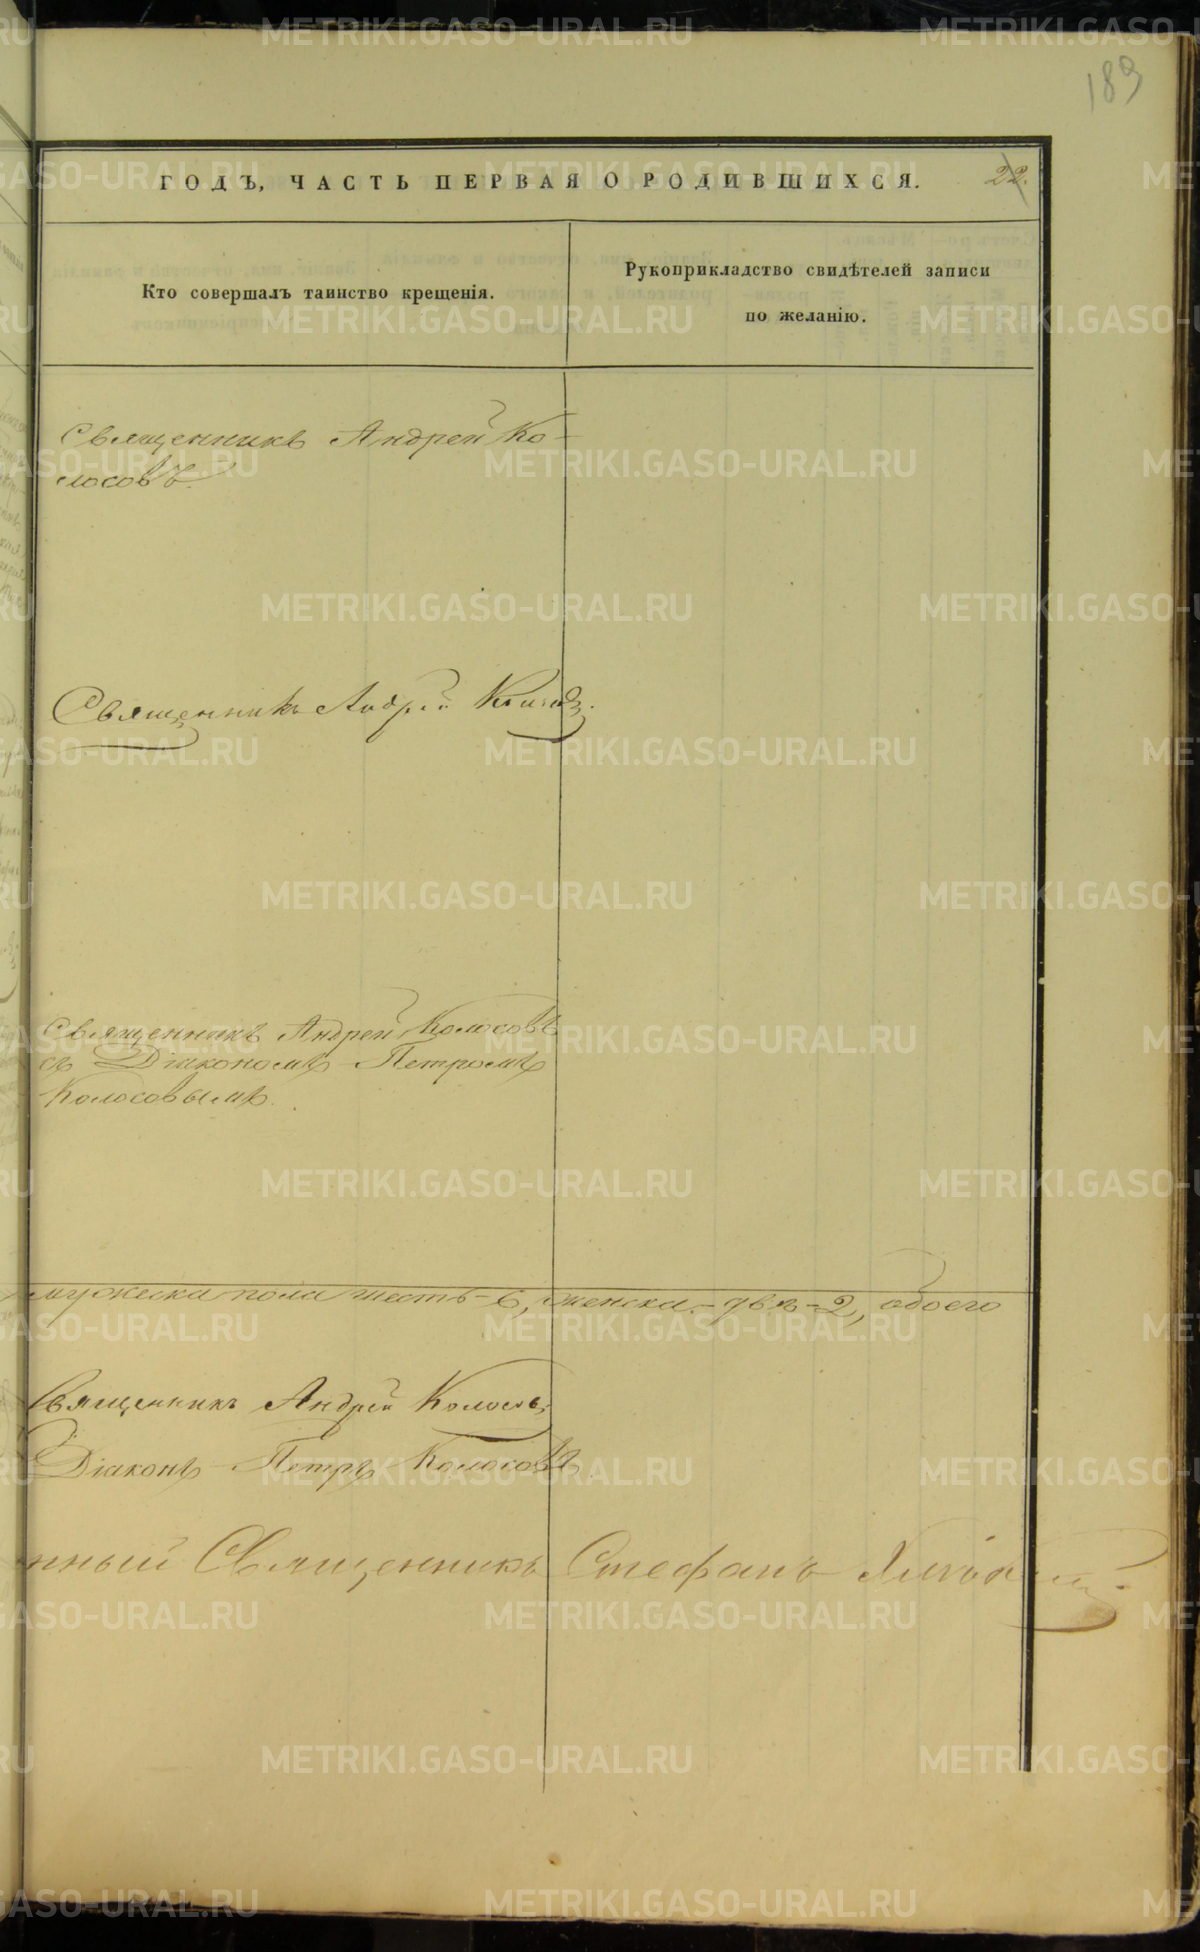 189
ГОДЪ, ЧАСТЬ ПЕРВАЯ О РОДИВШИХСЯ. 22.
Кто совершалъ таинство крещенія.
Рукоприкладство свидѣтелей записи
по желанію.
Священникъ Андрей Ко-
лосовъ.
Священникъ Андрей
Священникъ Андрей Колосовъ
съ Діакономъ Петромъ
Колосовымъ.
мужеска пола шесть - 6, женска - двѣ - 2, обоего
Священникъ Андрей Колосовъ
Діаконъ Петръ Колосовъ
нный Священникъ Стефанъ
METRIKI.GASO-URAL.RU